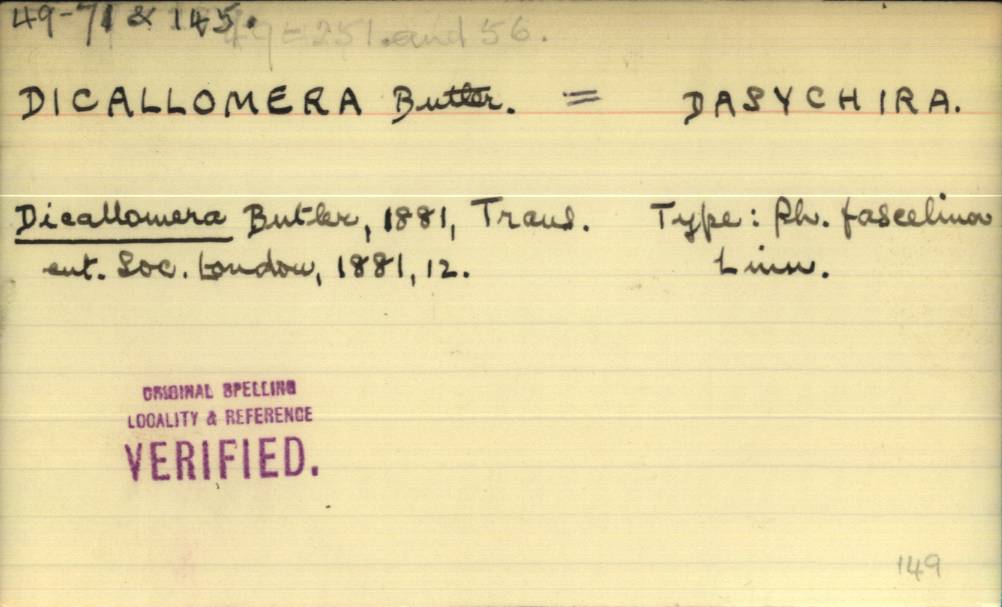 49-71 & 145.
49-251. and 56.
DICALLOMERA Butler. = DASYCHIRA.
Dicallomera Butler, 1881, Trans. Type: Ph. fascelina
ent. Soc. London, 1881, 12. Linn.
ORIGINAL SPELLING
LOCALITY & REFERENCE
VERIFIED.
149